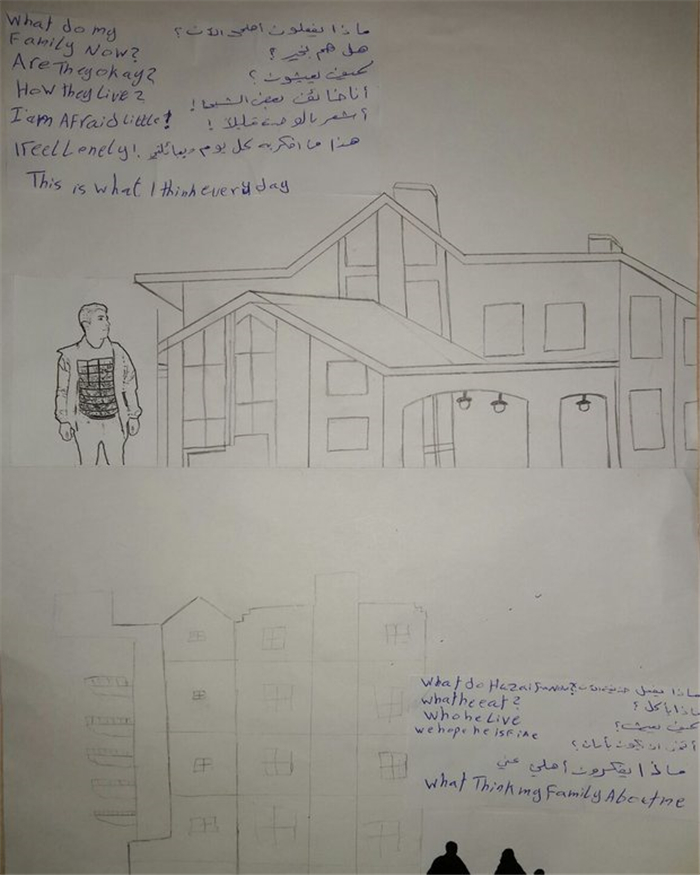 What do my ماذا يفعلون أهلي الآن؟
Family Now? هل هم بخير؟
Are They okay? كيف يعيشون؟
How they Live? أنا خائف بعض الشيئ!
I am Afraid Little! أشعر بالوحدة قليلاً!
I Feel Lonely! هذا ما افكر به كل يوم وبعائلتي
This is what I think every day
What do ماذا يفعل
what he eat? ماذا يأكل؟
who he Live كيف يعيش؟
we hope he is Fine أتمنى ان يكون بأمان؟
ماذا يفكرون أهلي عني
What Think my Family About me